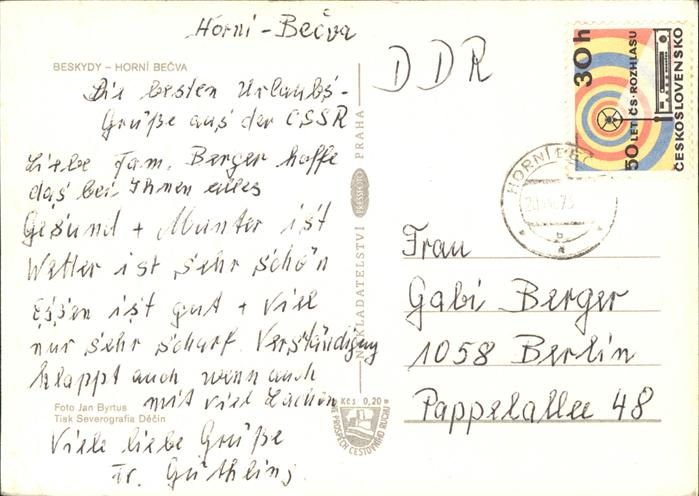 Horní - Bečva
BESKYDY – HORNÍ BEČVA
Die besten Urlaubs-
Grüße aus der CSSR
Liebe Fam. Berger hoffe
das bei Ihnen alles
Gesund + Munter ist
Wetter ist sehr schön
Essen ist gut + viel
nur sehr scharf. Verständigung
klappt auch wenn auch
mit viel Lachen
Viele liebe Grüße
Fr. Güthling
Foto Jan Byrtus
Tisk Severografia Děčín
NAKLADATELSTVÍ PRESSFOTO PRAHA
Kčs 0,20
VE PROSPĚCH CESTOVNÍHO RUCHU
DDR
30h
50 LET ČS. ROZHLASU
ČESKOSLOVENSKO
HORNÍ BEČ
b
Frau
Gabi Berger
1058 Berlin
Pappelallee 48